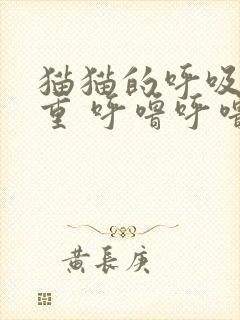 猫猫的呼吸
重 呼噜呼噜
黄长庚